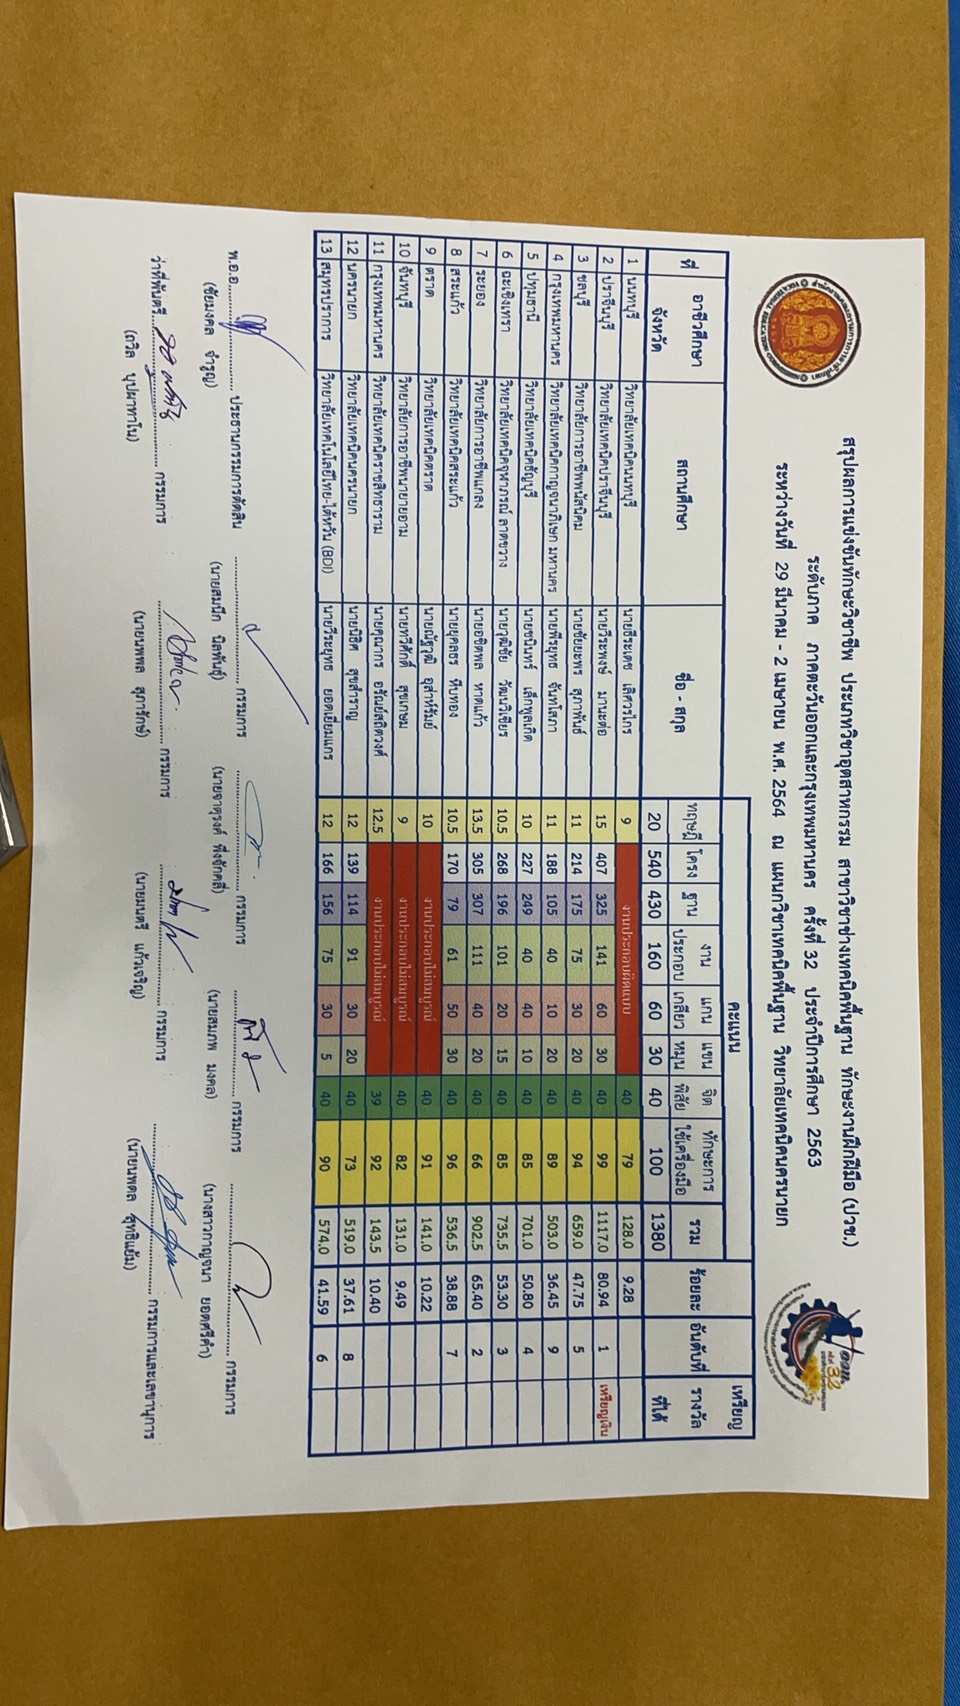 สรุปผลการแข่งขันทักษะวิชาชีพ ประเภทวิชาอุตสาหกรรม สาขาวิชาช่างเทคนิคพื้นฐาน ทักษะงานฝึกฝีมือ (ปวช.)
ระดับภาค ภาคตะวันออกและกรุงเทพมหานคร ครั้งที่ 32 ประจำปีการศึกษา 2563
ระหว่างวันที่ 29 มีนาคม - 2 เมษายน พ.ศ. 2564 ณ แผนกวิชาเทคนิคพื้นฐาน วิทยาลัยเทคนิคนครนายก
ที่ อาชีวศึกษาจังหวัด สถานศึกษา ชื่อ - สกุล คะแนน ร้อยละ อันดับที่ เหรียญรางวัลที่ได้
ทฤษฎี โครง ฐาน งานประกอบ แกนเกลียว แขนหมุน จิตพิสัย ทักษะการใช้เครื่องมือ รวม
20 540 430 160 60 30 40 100 1380
1 นนทบุรี วิทยาลัยเทคนิคนนทบุรี นายธีระเดช เลิศวรไกร 9 งานประกอบผิดแบบ 40 79 128.0 9.28
2 ปราจีนบุรี วิทยาลัยเทคนิคปราจีนบุรี นายวีระพงษ์ มานะต่อ 15 407 325 141 60 30 40 99 1117.0 80.94 1 เหรียญเงิน
3 ชลบุรี วิทยาลัยการอาชีพพนัสนิคม นายชัยยะพร สุภาพันธ์ 11 214 175 75 30 20 40 94 659.0 47.75 5
4 กรุงเทพมหานคร วิทยาลัยเทคนิคกาญจนาภิเษก มหานคร นายพีรยุทธ จันทโสภา 11 188 105 40 10 20 40 89 503.0 36.45 9
5 ปทุมธานี วิทยาลัยเทคนิคธัญบุรี นายชนินทร์ เล็กพูลเกิด 10 227 249 40 40 10 40 85 701.0 50.80 4
6 ฉะเชิงเทรา วิทยาลัยเทคนิคจุฬาภรณ์ ลาดขวาง นายวุฒิชัย วัฒนวิเชียร 10.5 268 196 101 20 15 40 85 735.5 53.30 3
7 ระยอง วิทยาลัยการอาชีพแกลง นายอชิตพล หาดแก้ว 13.5 305 307 111 40 20 40 66 902.5 65.40 2
8 สระแก้ว วิทยาลัยเทคนิคสระแก้ว นายยุคลธร หีบทอง 10.5 170 79 61 50 30 40 96 536.5 38.88 7
9 ตราด วิทยาลัยเทคนิคตราด นายณัฐวุฒิ อุส่าห์รัมย์ 10 งานประกอบไม่สมบูรณ์ 40 91 141.0 10.22
10 จันทบุรี วิทยาลัยการอาชีพนายายอาม นายทวีศักดิ์ สุขเกษม 9 งานประกอบไม่สมบูรณ์ 40 82 131.0 9.49
11 กรุงเทพมหานคร วิทยาลัยเทคนิคราชสิทธาราม นายคุณากร อรัณย์สถิตวงศ์ 12.5 งานประกอบไม่สมบูรณ์ 39 92 143.5 10.40
12 นครนายก วิทยาลัยเทคนิคนครนายก นายนิธิศ สุขสำราญ 12 139 114 91 30 20 40 73 519.0 37.61 8
13 สมุทรปราการ วิทยาลัยเทคโนโลยีไทย-ไต้หวัน (BDI) นายวีระยุทธ ยอดเยี่ยมแกร 12 166 156 75 30 5 40 90 574.0 41.59 6
พ.อ.อ. ประธานกรรมการตัดสิน กรรมการ กรรมการ กรรมการ กรรมการ
(ชัยมงคล จำรูญ) (นายสมนึก นิลพันธุ์) (นายจาตุรงค์ พึ่งจักคลี่) (นายสมภพ มงคล) (นางสาวกาญจนา ยอดศรีคำ)
ว่าที่พันตรี กรรมการ กรรมการ กรรมการ กรรมการและเลขานุการ
(ถวิล บุปผาทาโน) (นายนพพล สุภารักษ์) (นายมนตรี แก้วเจริญ) (นายนพดล สุทธิแย้ม)